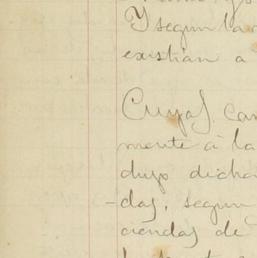 Y segun la
existian a
Cuyas can
mente á la
dujo dicha
-das, segun
ciendas de